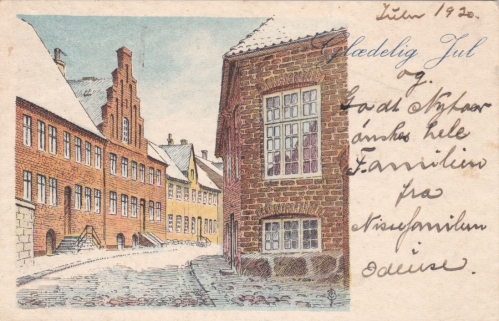 Julen 1920.
Glædelig Jul
og.
Godt Nytaar
ønskes hele
Familien
fra
Nissefamilien
i
Odense.